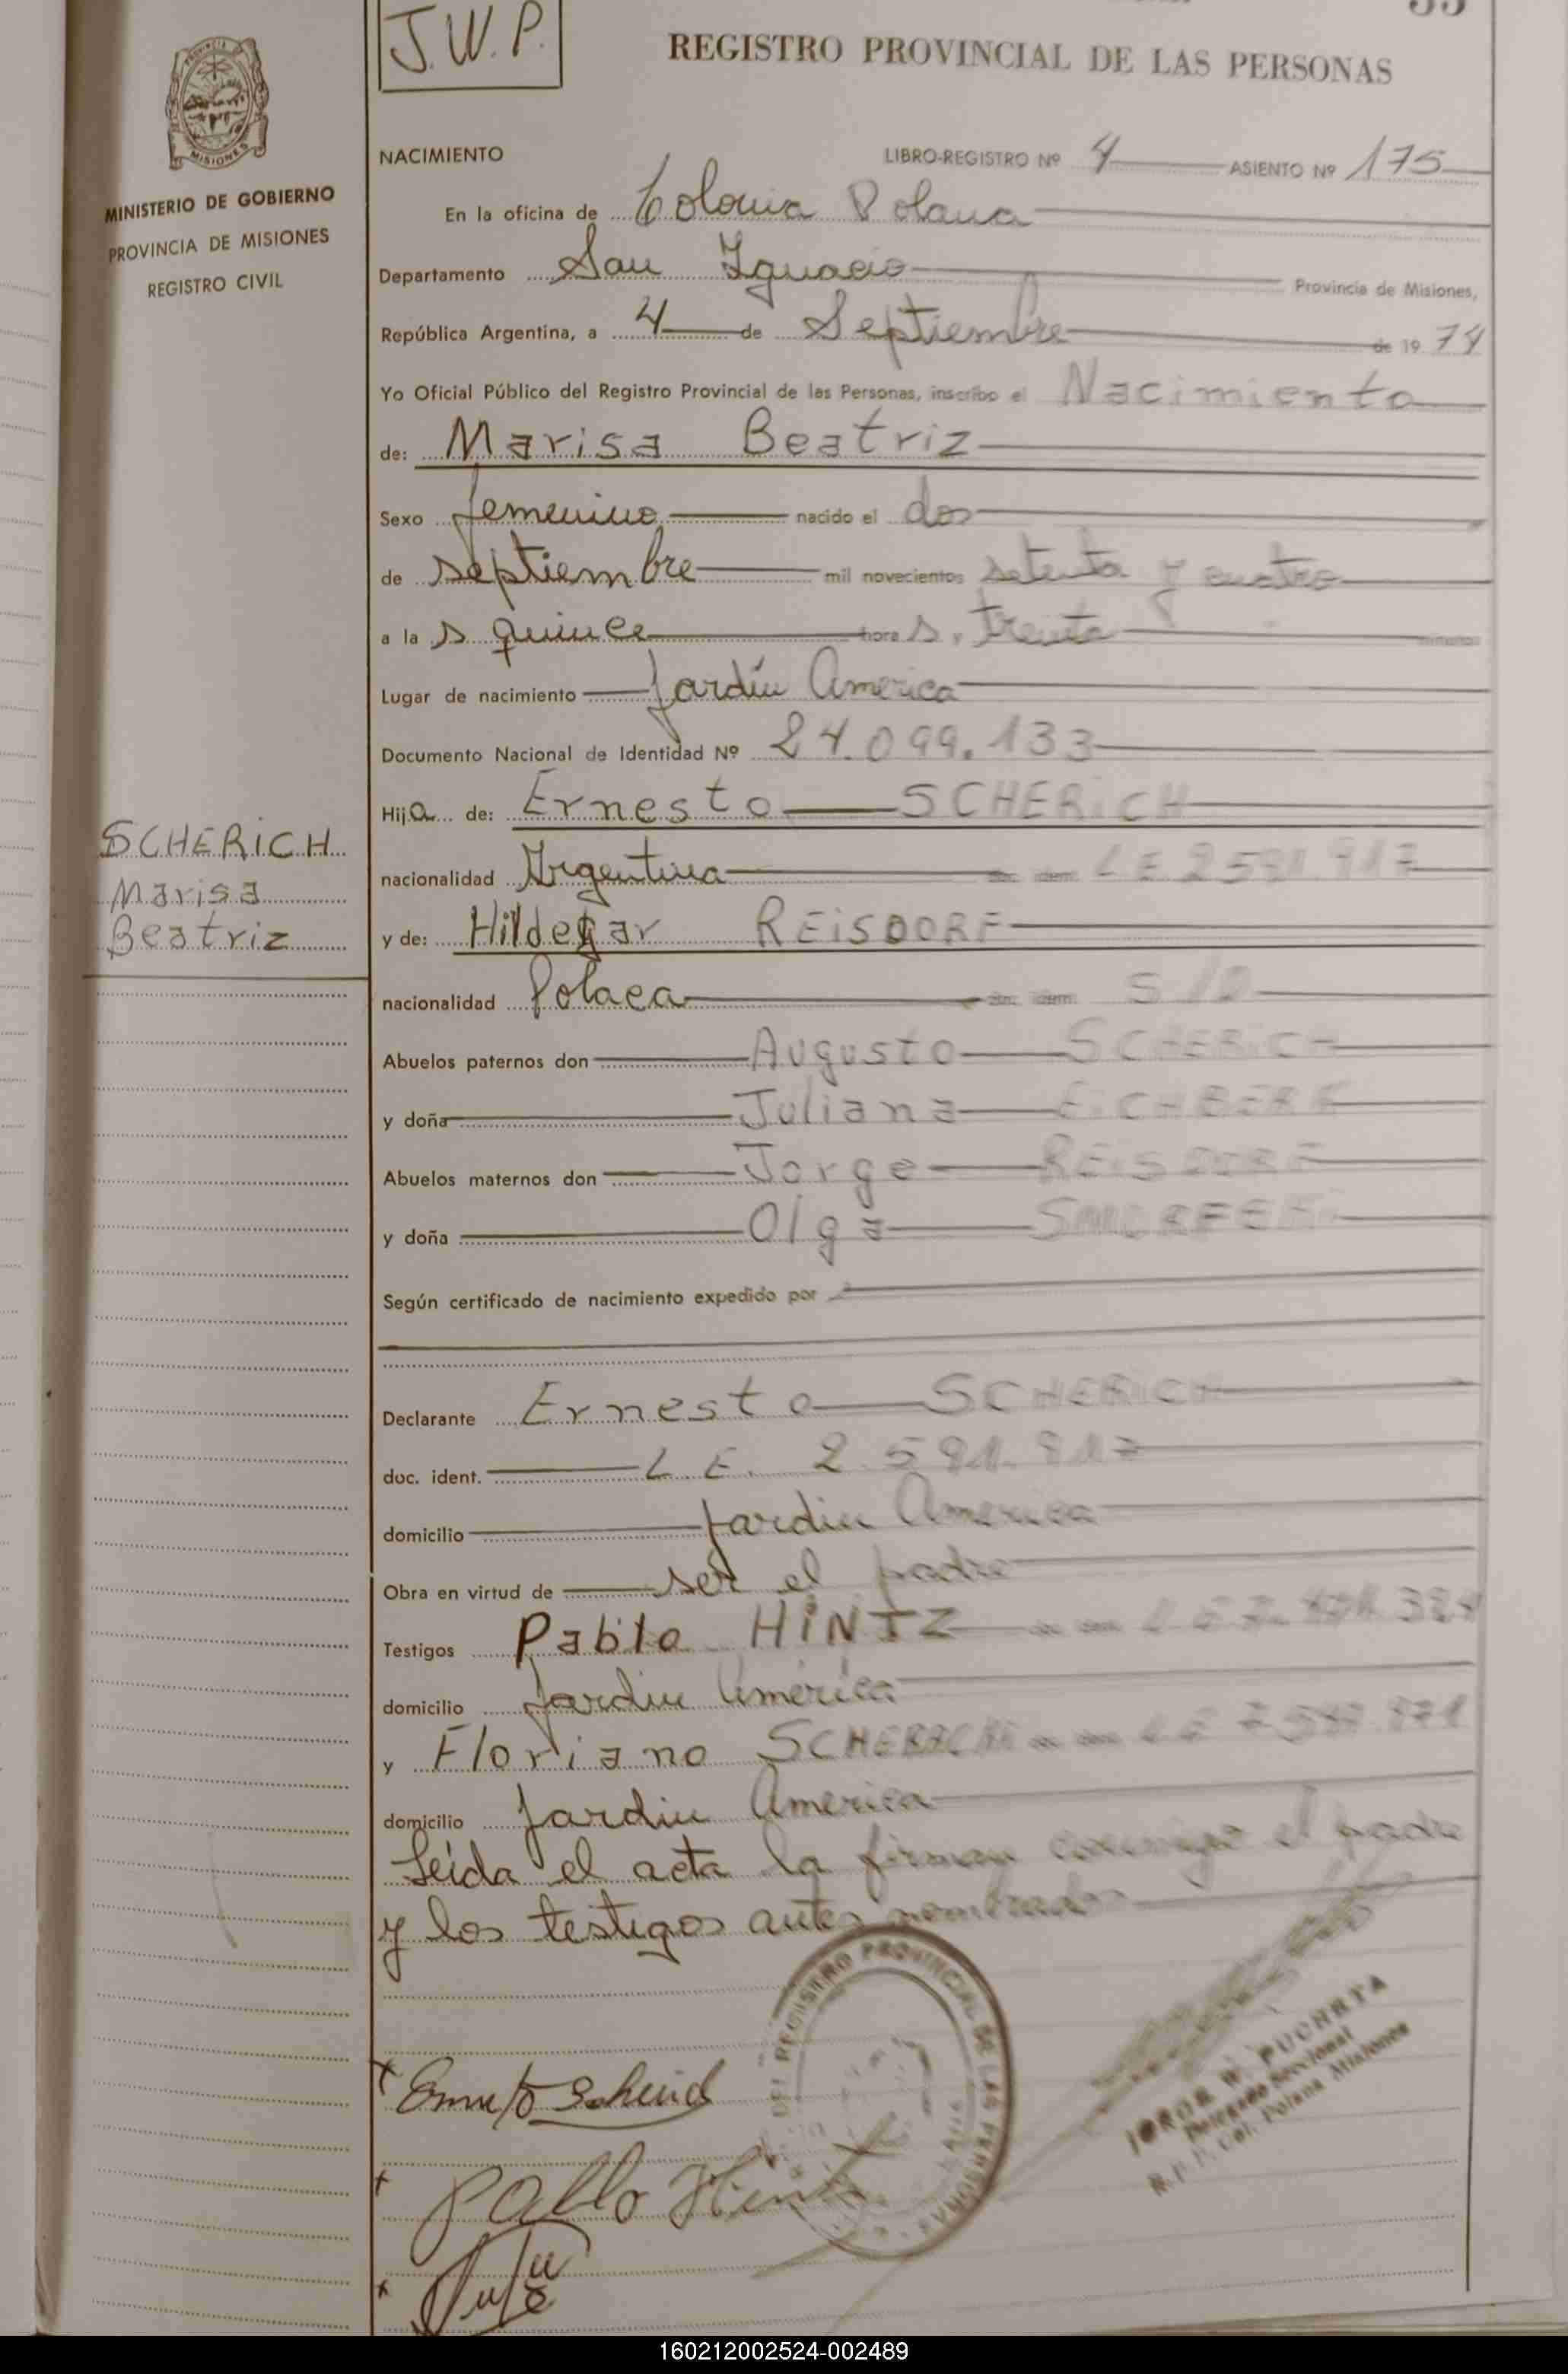 J.W.P.
REGISTRO PROVINCIAL DE LAS PERSONAS
MISIONES
MINISTERIO DE GOBIERNO
PROVINCIA DE MISIONES
REGISTRO CIVIL
NACIMIENTO LIBRO-REGISTRO Nº 4 ASIENTO Nº 175
En la oficina de Colonia Polana
Departamento San Ignacio Provincia de Misiones,
República Argentina, a 4 de Septiembre de 19 74
Yo Oficial Público del Registro Provincial de las Personas, inscribo el Nacimiento
de: Marisa Beatriz
Sexo femenino nacido el dos
de septiembre mil novecientos setenta y cuatro
a la s quince hora s, treinta minutos
Lugar de nacimiento Jardín America
Documento Nacional de Identidad Nº 24.099.133
Hija de: Ernesto SCHERiCH
SCHERiCH
Marisa
Beatriz
nacionalidad Argentina doc. idem. LE 2591.917
y de: Hildegar REiSDORF
nacionalidad Polaca doc. idem. S/D
Abuelos paternos don Augusto SCHERiCH
y doña Juliana
Abuelos maternos don Jorge REiSDORF
y doña Olga
Según certificado de nacimiento expedido por
Declarante Ernesto SCHERiCH
doc. ident. L.E. 2.591.917
domicilio Jardin America
Obra en virtud de ser el padre
Testigos Pablo HiNTZ
domicilio Jardin América
y Floriano
domicilio Jardin America
Leída el acta la firman conmigo el padre
y los testigos antes nombrados
DEL REGISTRO PROVINCIAL DE LAS PERSONAS
JORGE W. PUCHETA
Delegado Seccional
R.P.P. Col. Polana Misiones
Pablo Hintz
160212002524-002489